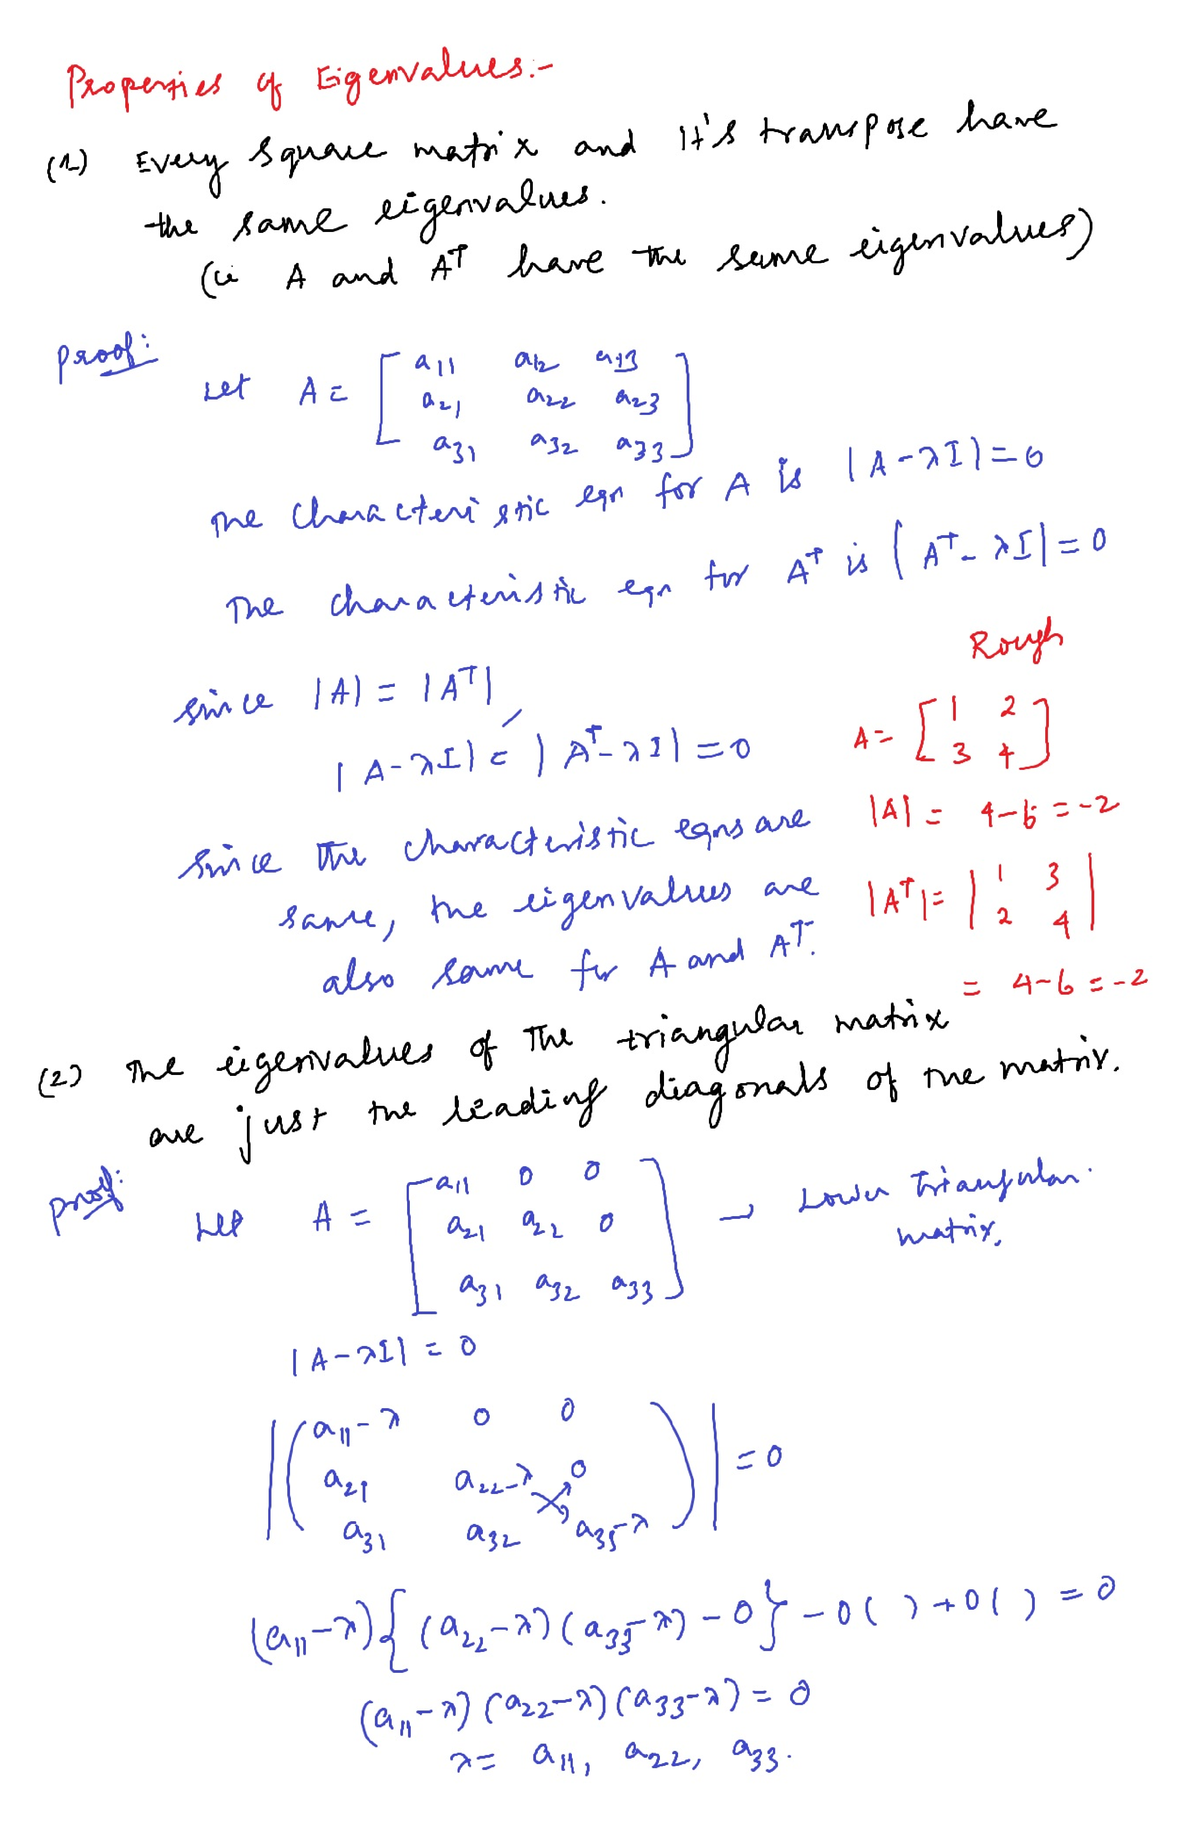 Properties of Eigenvalues:-
(1) Every square matrix and it's transpose have
the same eigenvalues.
(ie A and Aᵀ have the same eigenvalues)
proof:
Let A = [ a11 a12 a13
a21 a22 a23
a31 a32 a33 ]
The characteristic eqn for A is |A-λI|=0
The characteristic eqn for Aᵀ is |Aᵀ-λI|=0
Rough
since |A| = |Aᵀ|,
A = [ 1 2
3 4 ]
|A-λI| = |Aᵀ-λI| = 0
|A| = 4-6 = -2
Since the characteristic eqns are
same, the eigenvalues are
|Aᵀ| = | 1 3
2 4 |
also same for A and Aᵀ.
= 4-6 = -2
(2) The eigenvalues of the triangular matrix
are just the leading diagonals of the matrix.
proof:
Let A = [ a11 0 0
a21 a22 0
a31 a32 a33 ] → Lower triangular
matrix.
|A-λI| = 0
|( a11-λ 0 0
a21 a22-λ 0
a31 a32 a33-λ )| = 0
(a11-λ){(a22-λ)(a33-λ)-0}-0( )+0( ) = 0
(a11-λ)(a22-λ)(a33-λ) = 0
λ = a11, a22, a33.